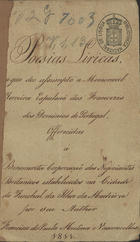 Poesias Lyricas,
que de assumpto a Memoravel
Terceira Expulsaõ dos Francezes
dos Dominios de Portugal,
Offerecidas
a
Corporação dos Negociantes
Britanicos estabelecidos na Cidade
do Funchal da Ilha da Madeira
por seu Author
Francisco de Paula Medina e Vasconcellos
1811